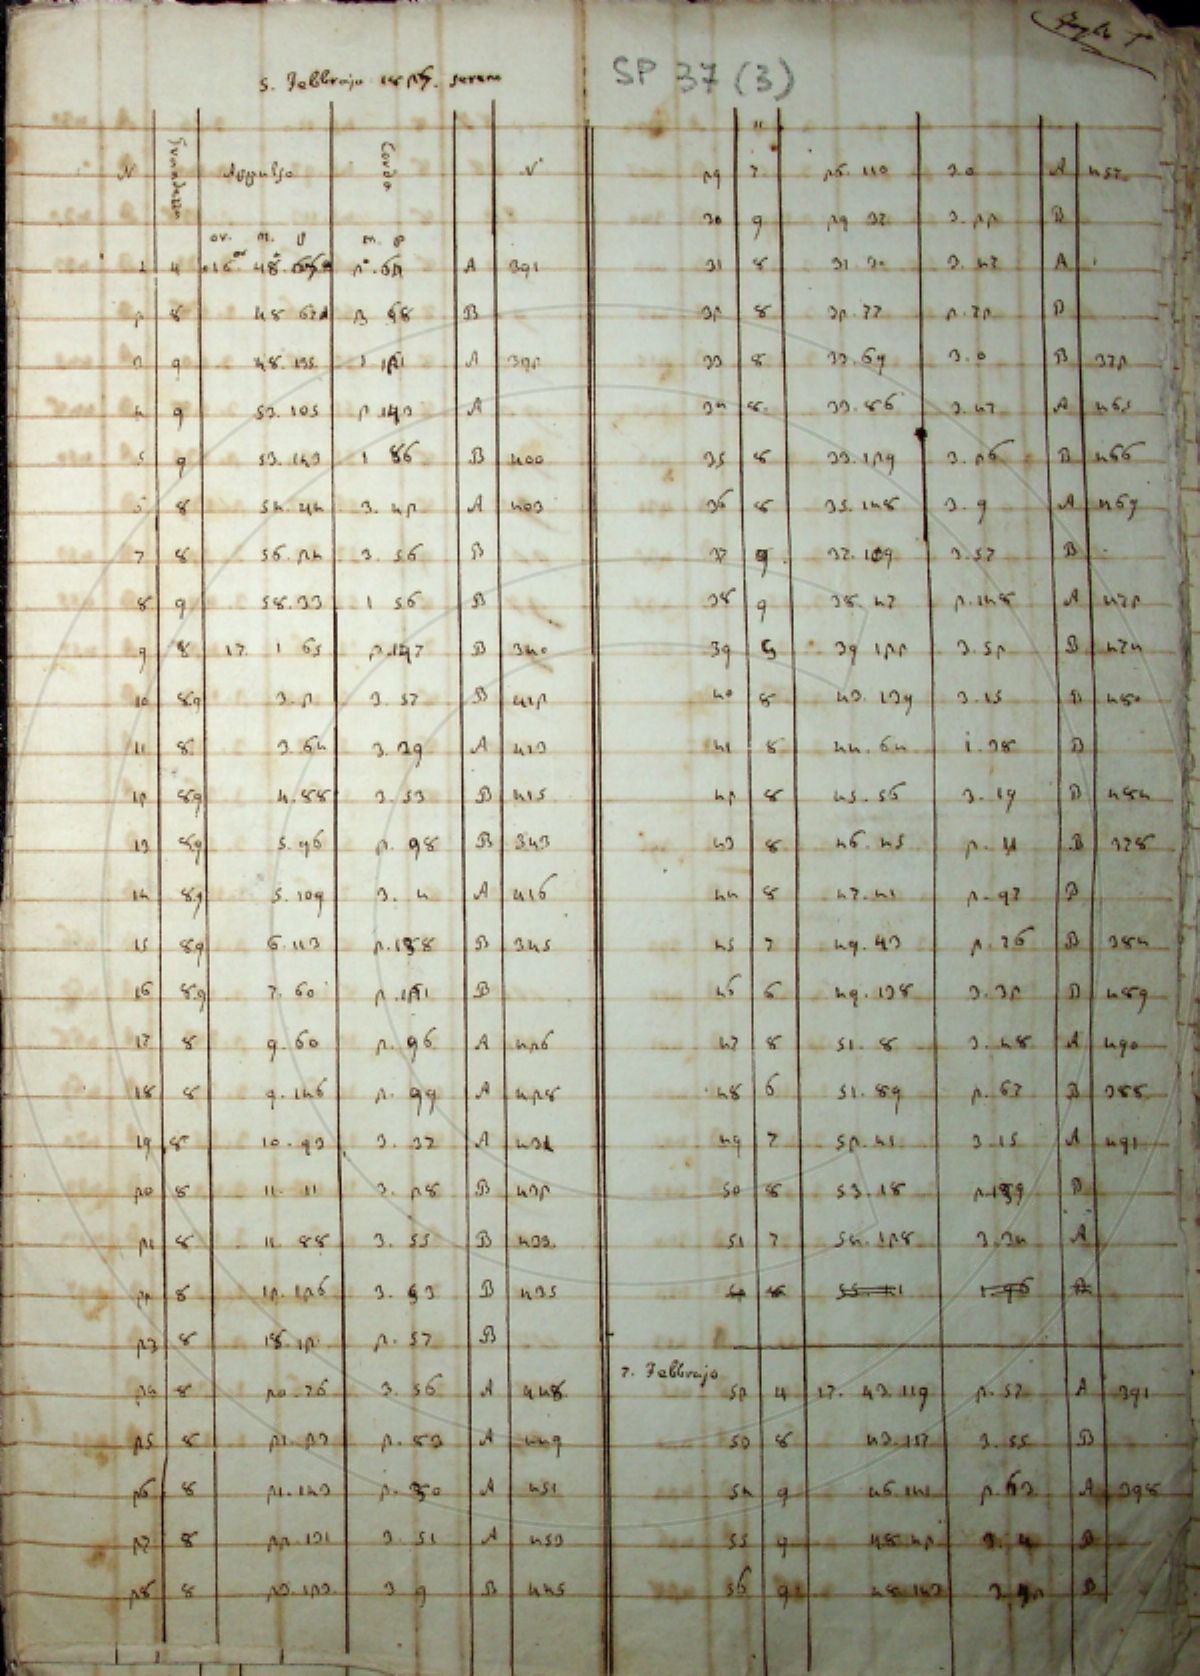 5. Febbrajo sereno
SP 37 (3)
N Grandezza Appulso Corda N
or. m. p m. p
1 4 A 391
2 8 B
3 9 48.135 A 392
4 9 53.105 2.143 A
5 9 53.143 1 86 B 400
6 8 54.44 3.42 A 403
7 8 56.24 3.56 B
8 9 58.33 1 56 B
9 8 17 1 65 2.147 B 340
10 89 3.2 3.57 B 412
11 8 3.64 3.29 A 413
12 89 4.88 3.53 B 415
13 89 5.96 2.98 B 343
14 89 5.109 3.4 A 416
15 89 6.113 2.138 B 345
16 89 7.60 B
17 8 9.60 2.96 A 426
18 8 9.146 2.99 A 428
19 8 10.93 3.37 A 431
20 8 11.11 3.28 B 432
21 8 11.88 3.55 B 433
22 8 12.126 3.93 B 435
23 8 18.12 2.57 B
24 8 20.76 3.56 A 448
25 8 21.23 2.83 A 449
26 8 21.143 2.30 A 451
27 8 22.131 3.51 A 453
28 8 23.123 3 9 B 445
29 7 26.110 3.0 A 457
30 9 29 37 3.22 B
31 8 31.30 3.47 A
32 8 32.77 2.72 B
33 8 33.69 3.0 B 372
34 8 33.86 3.47 A 465
35 8 33.129 3.26 B 466
36 8 35.148 3.9 A 467
37 9 37.109 3.57 B
38 9 38.47 2.148 A 472
39 39 122 3.52 B 474
40 8 43.139 3.15 B 480
41 8 44.64 1.38 B
42 8 45.56 3.14 B 484
43 8 46.45 B 378
44 8 47.41 2.97 B
45 7 49.43 2.76 B 384
46 6 49.138 3.32 B 489
47 8 51.8 3.48 A 490
48 6 51.89 2.67 B 388
49 7 52.41 3.15 A 491
50 8 53.18 2.139 B
51 7 54.128 3.34 A
7. Febbrajo
52 4 17. 43.119 2.57 A 391
53 8 43.137 3.55 B
54 9 46.141 2.63 A 398
55 9 48.42 3.4 B
56 9 48.143 B